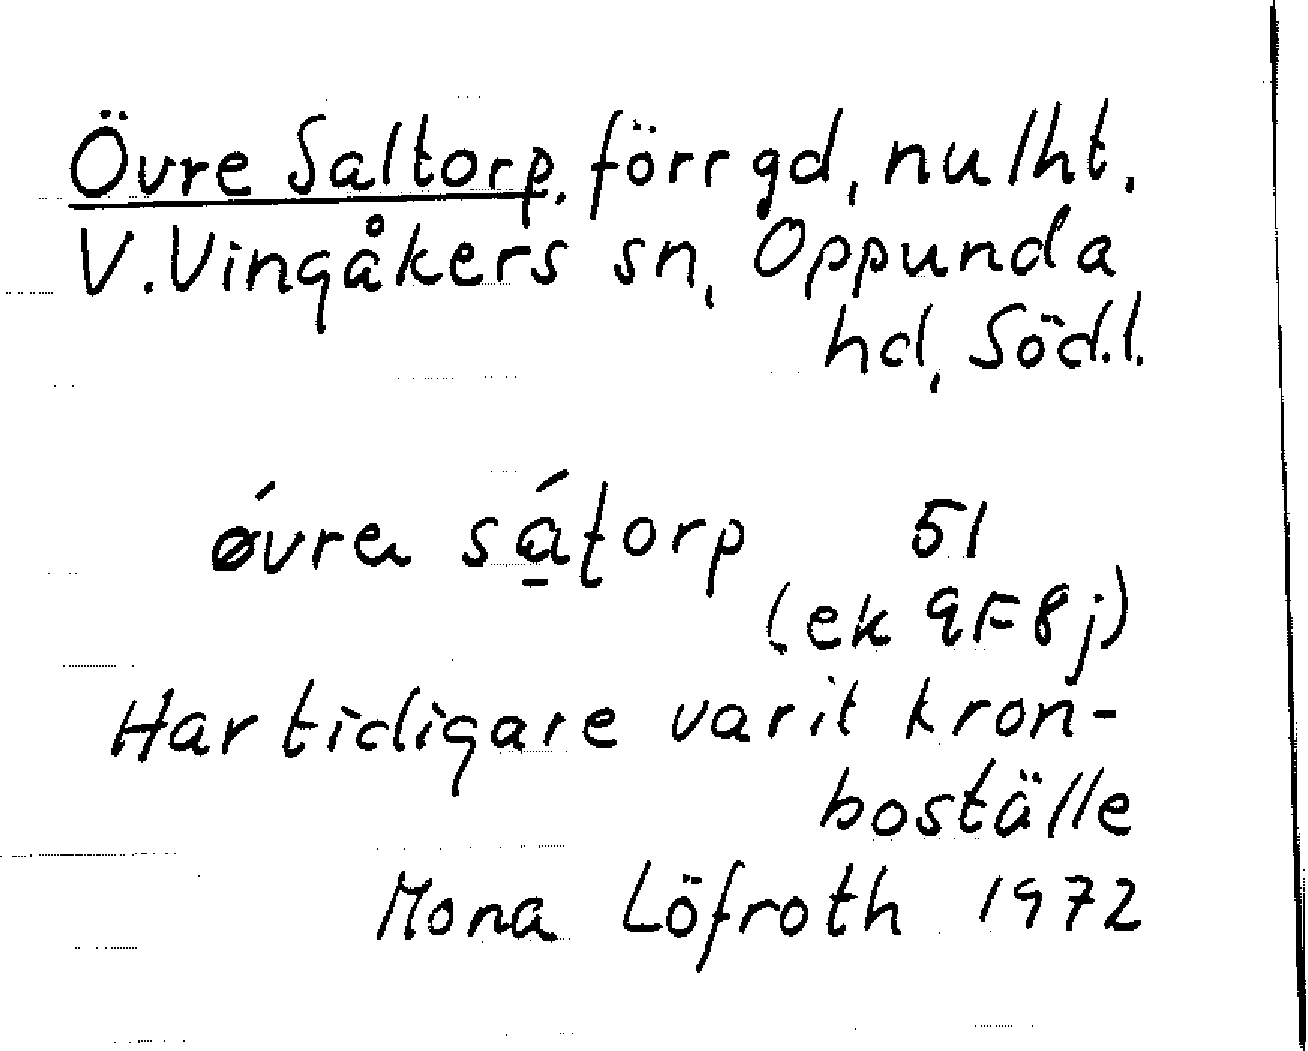 Övre Saltorp. förr gd, nu lht.
V. Vingåkers sn, Oppunda
hd, Söd.l.
ǿvra sá̱torp 51
(ek 9F8j)
Har tidigare varit kron-
boställe
Mona Löfroth 1972